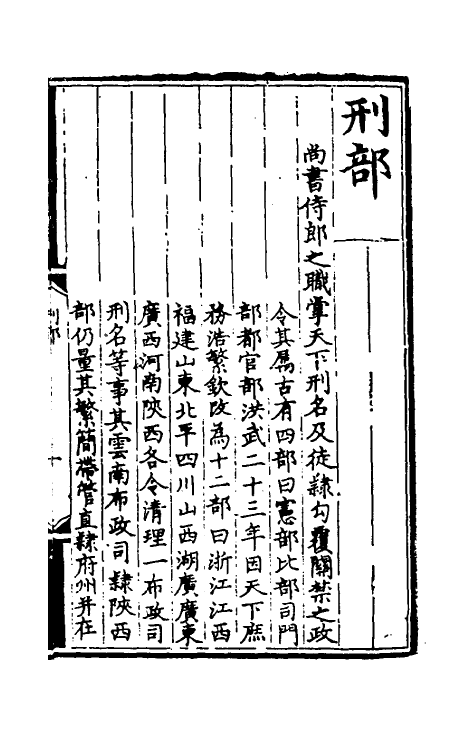 刑部
尚書侍郎之職掌天下刑名及徒隸勾覆關禁之政
令其屬古有四部曰憲部比部司門
部都官部洪武二十三年因天下庶
務浩繁欽改為十二部曰浙江江西
福建山東北平四川山西湖廣廣東
廣西河南陝西各令清理一布政司
刑名等事其雲南布政司隸陝西
部仍量其繁簡帶管直隸府州并在